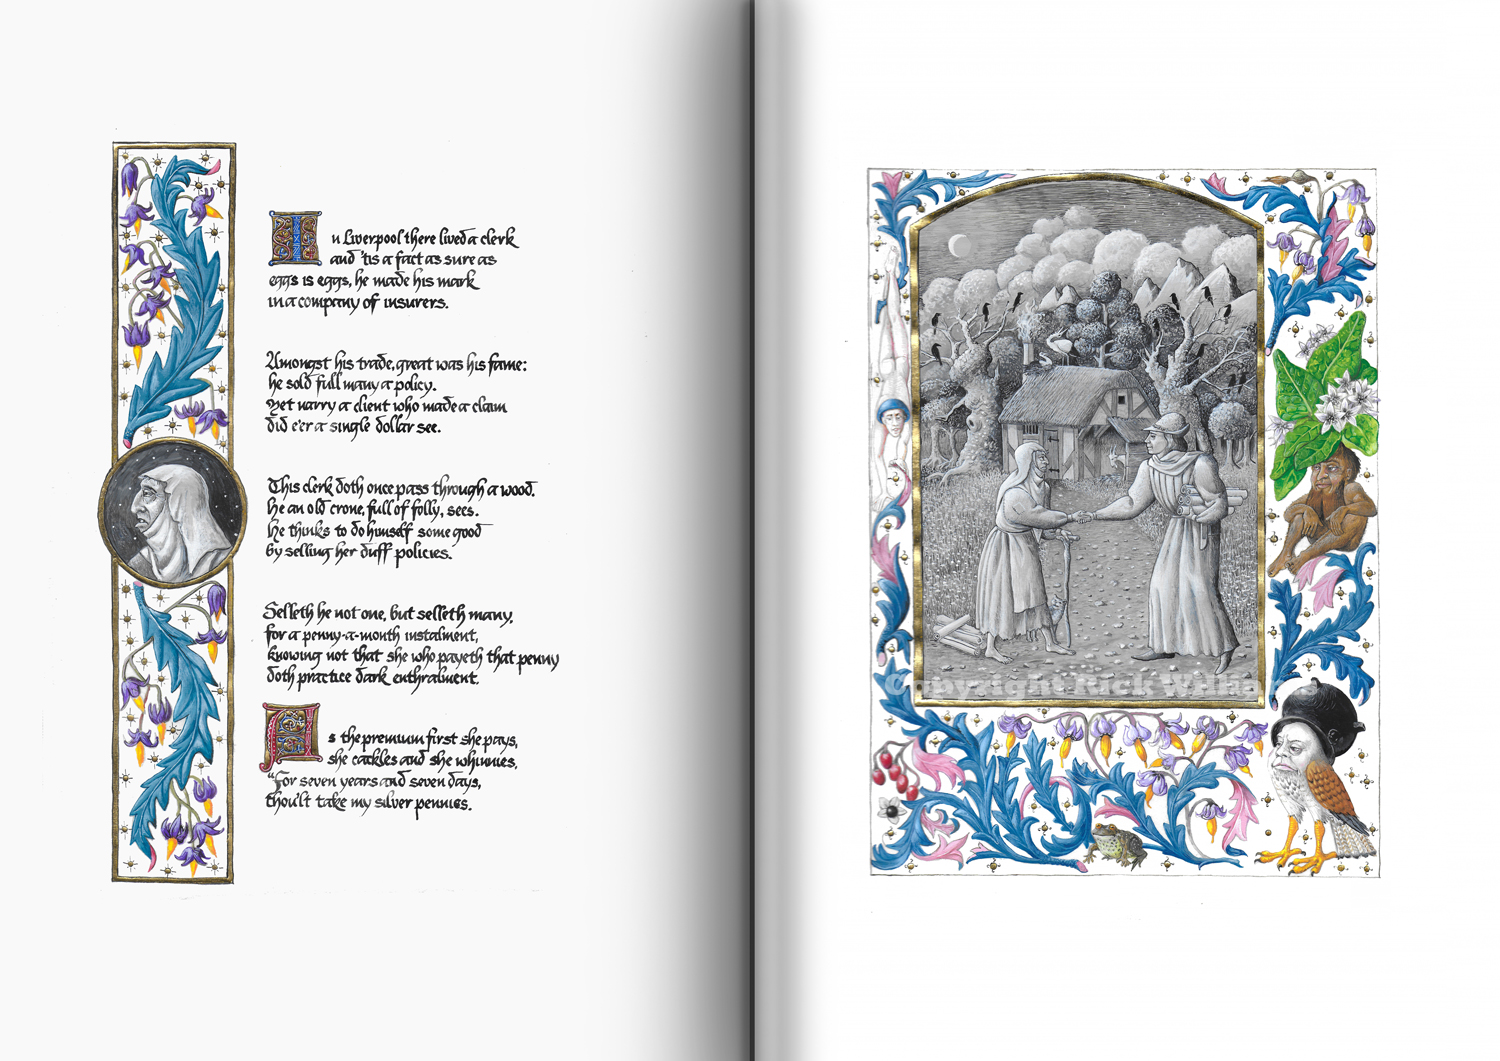 In Liverpool there lived a clerk
and 'tis a fact as sure as
eggs is eggs, he made his mark
in a company of insurers.
Amongst his trade, great was his fame:
he sold full many a policy.
Yet narry a client who made a claim
did e'er a single dollar see.
This clerk doth once pass through a wood.
He an old crone, full of folly, sees.
He thinks to do himself some good
by selling her duff policies.
Selleth he not one, but selleth many,
for a penny-a-month instalment,
knowing not that she who payeth that penny
doth practice dark enthralment.
As the premium first she pays,
she cackles and she whinnies,
"For seven years and seven days,
thou'lt take my silver pennies.
Copyright Rick